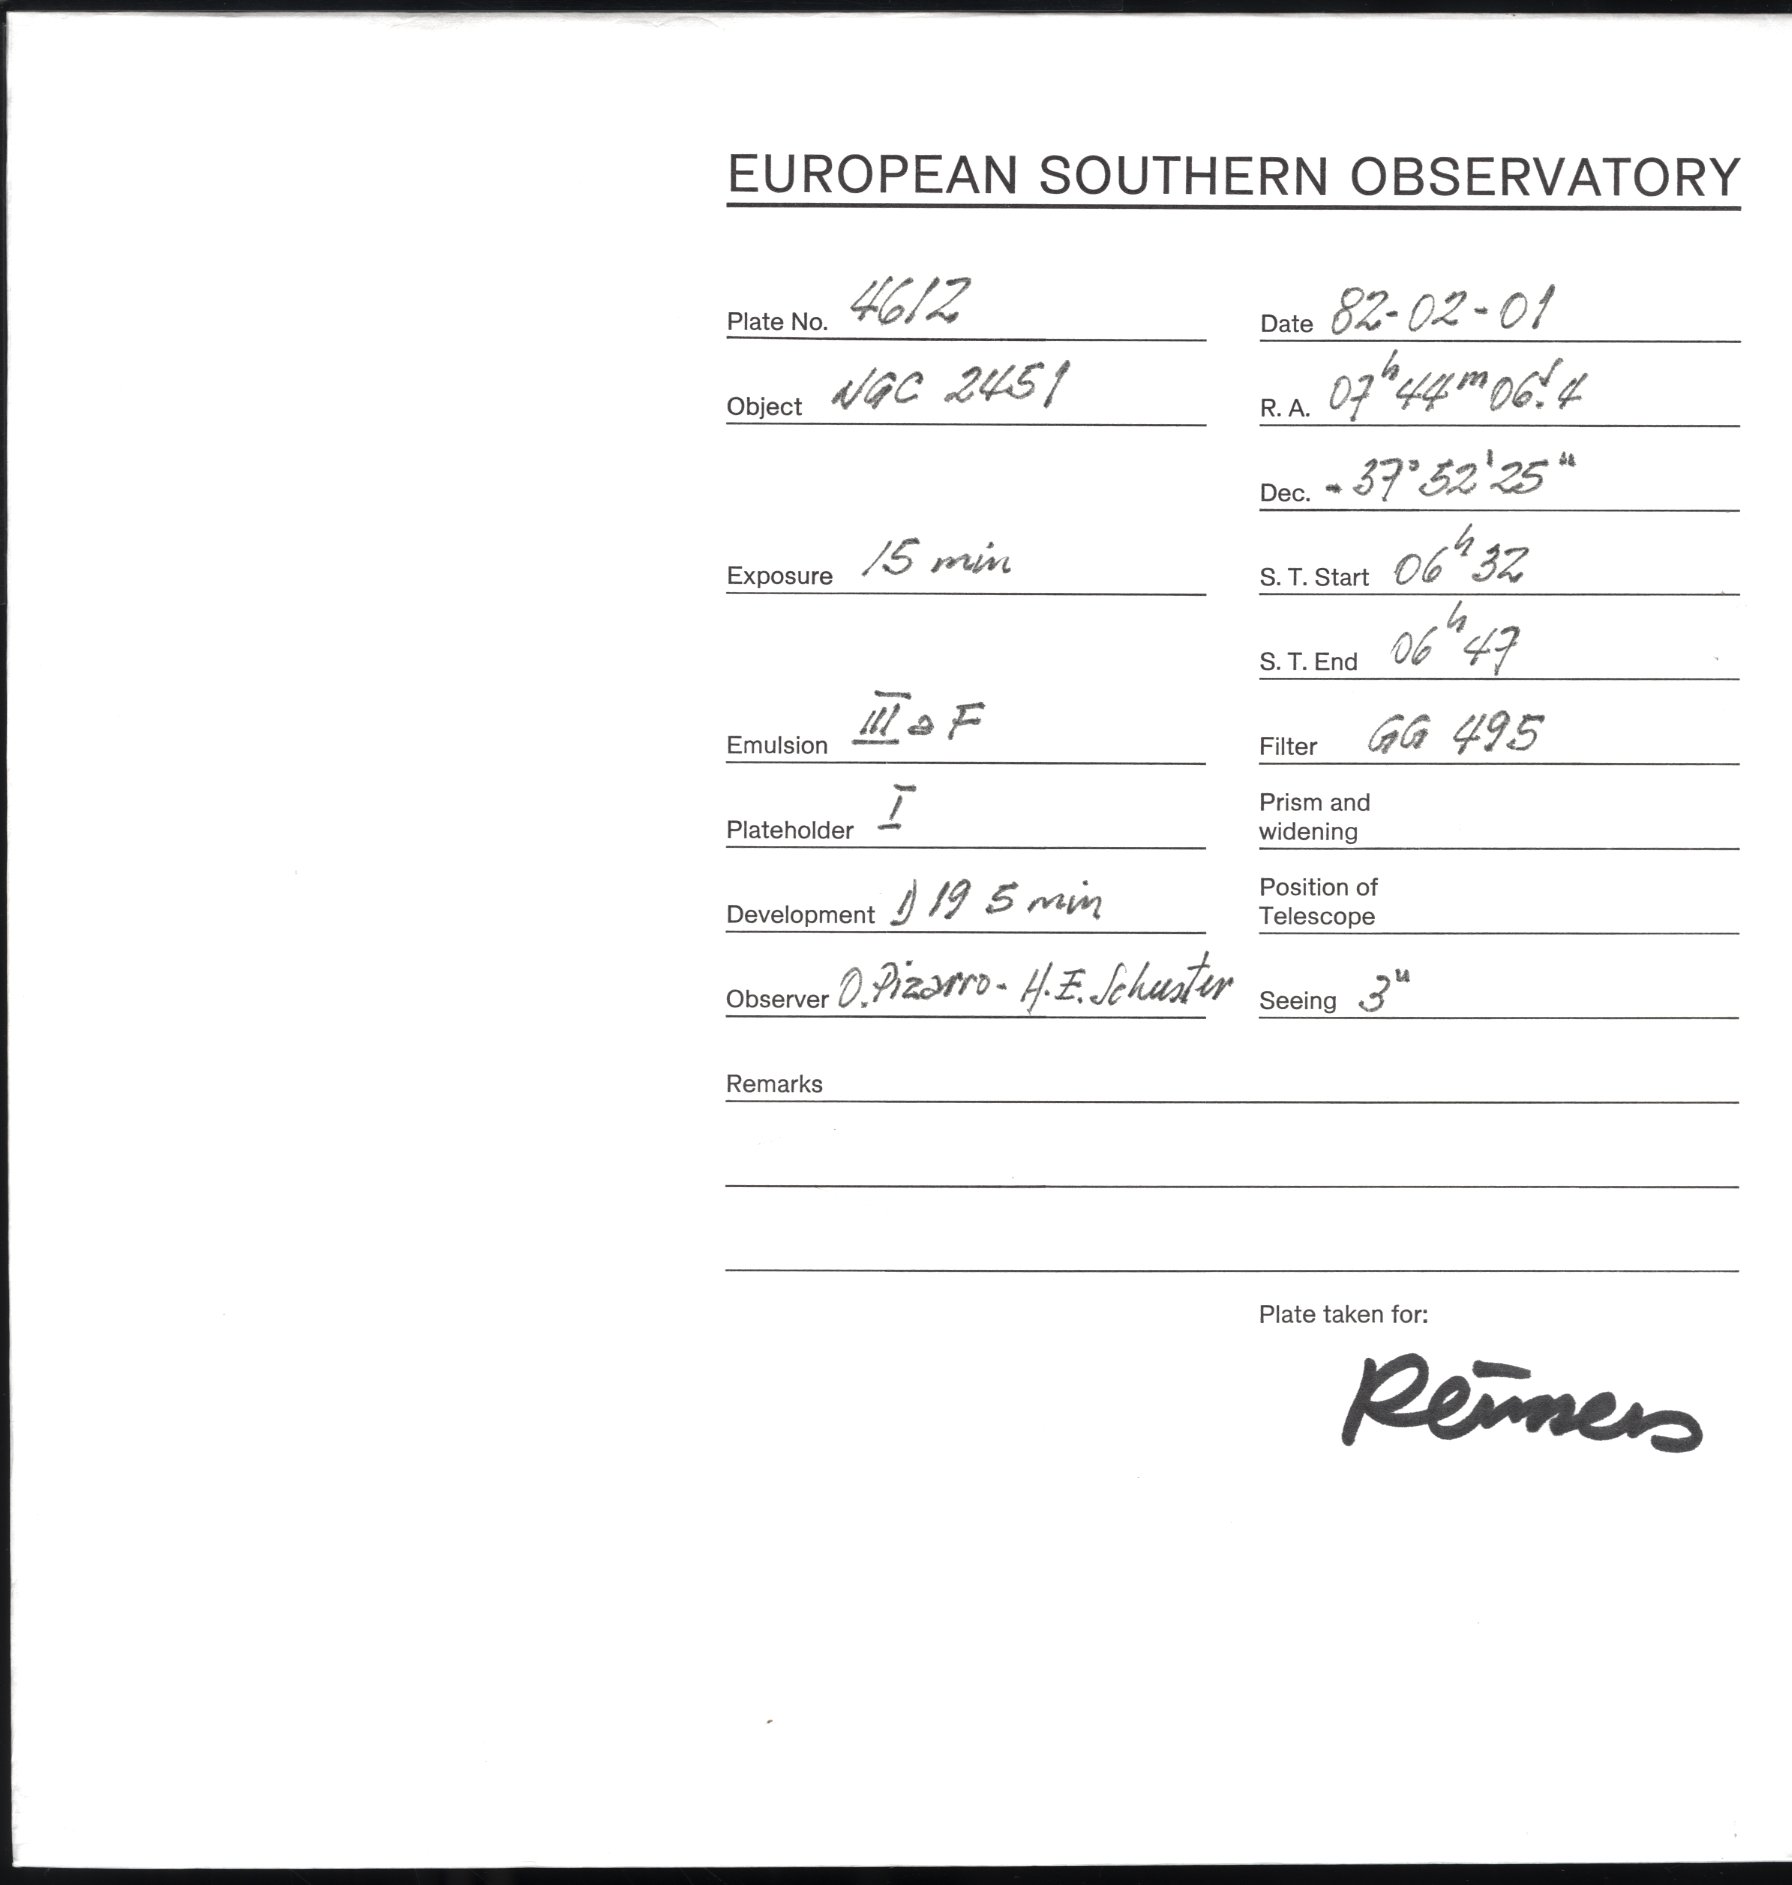 EUROPEAN SOUTHERN OBSERVATORY
Plate No. 4612
Date 82-02-01
Object NGC 2451
R. A. 07h 44m 06s.4
Dec. - 37° 52' 25"
Exposure 15 min
S. T. Start 06h 32
S. T. End 06h 47
Emulsion III a F
Filter GG 495
Plateholder I
Prism and
widening
Development D 19 5 min
Position of
Telescope
Observer O. Pizarro - H. E. Schuster
Seeing 3"
Remarks
Plate taken for: